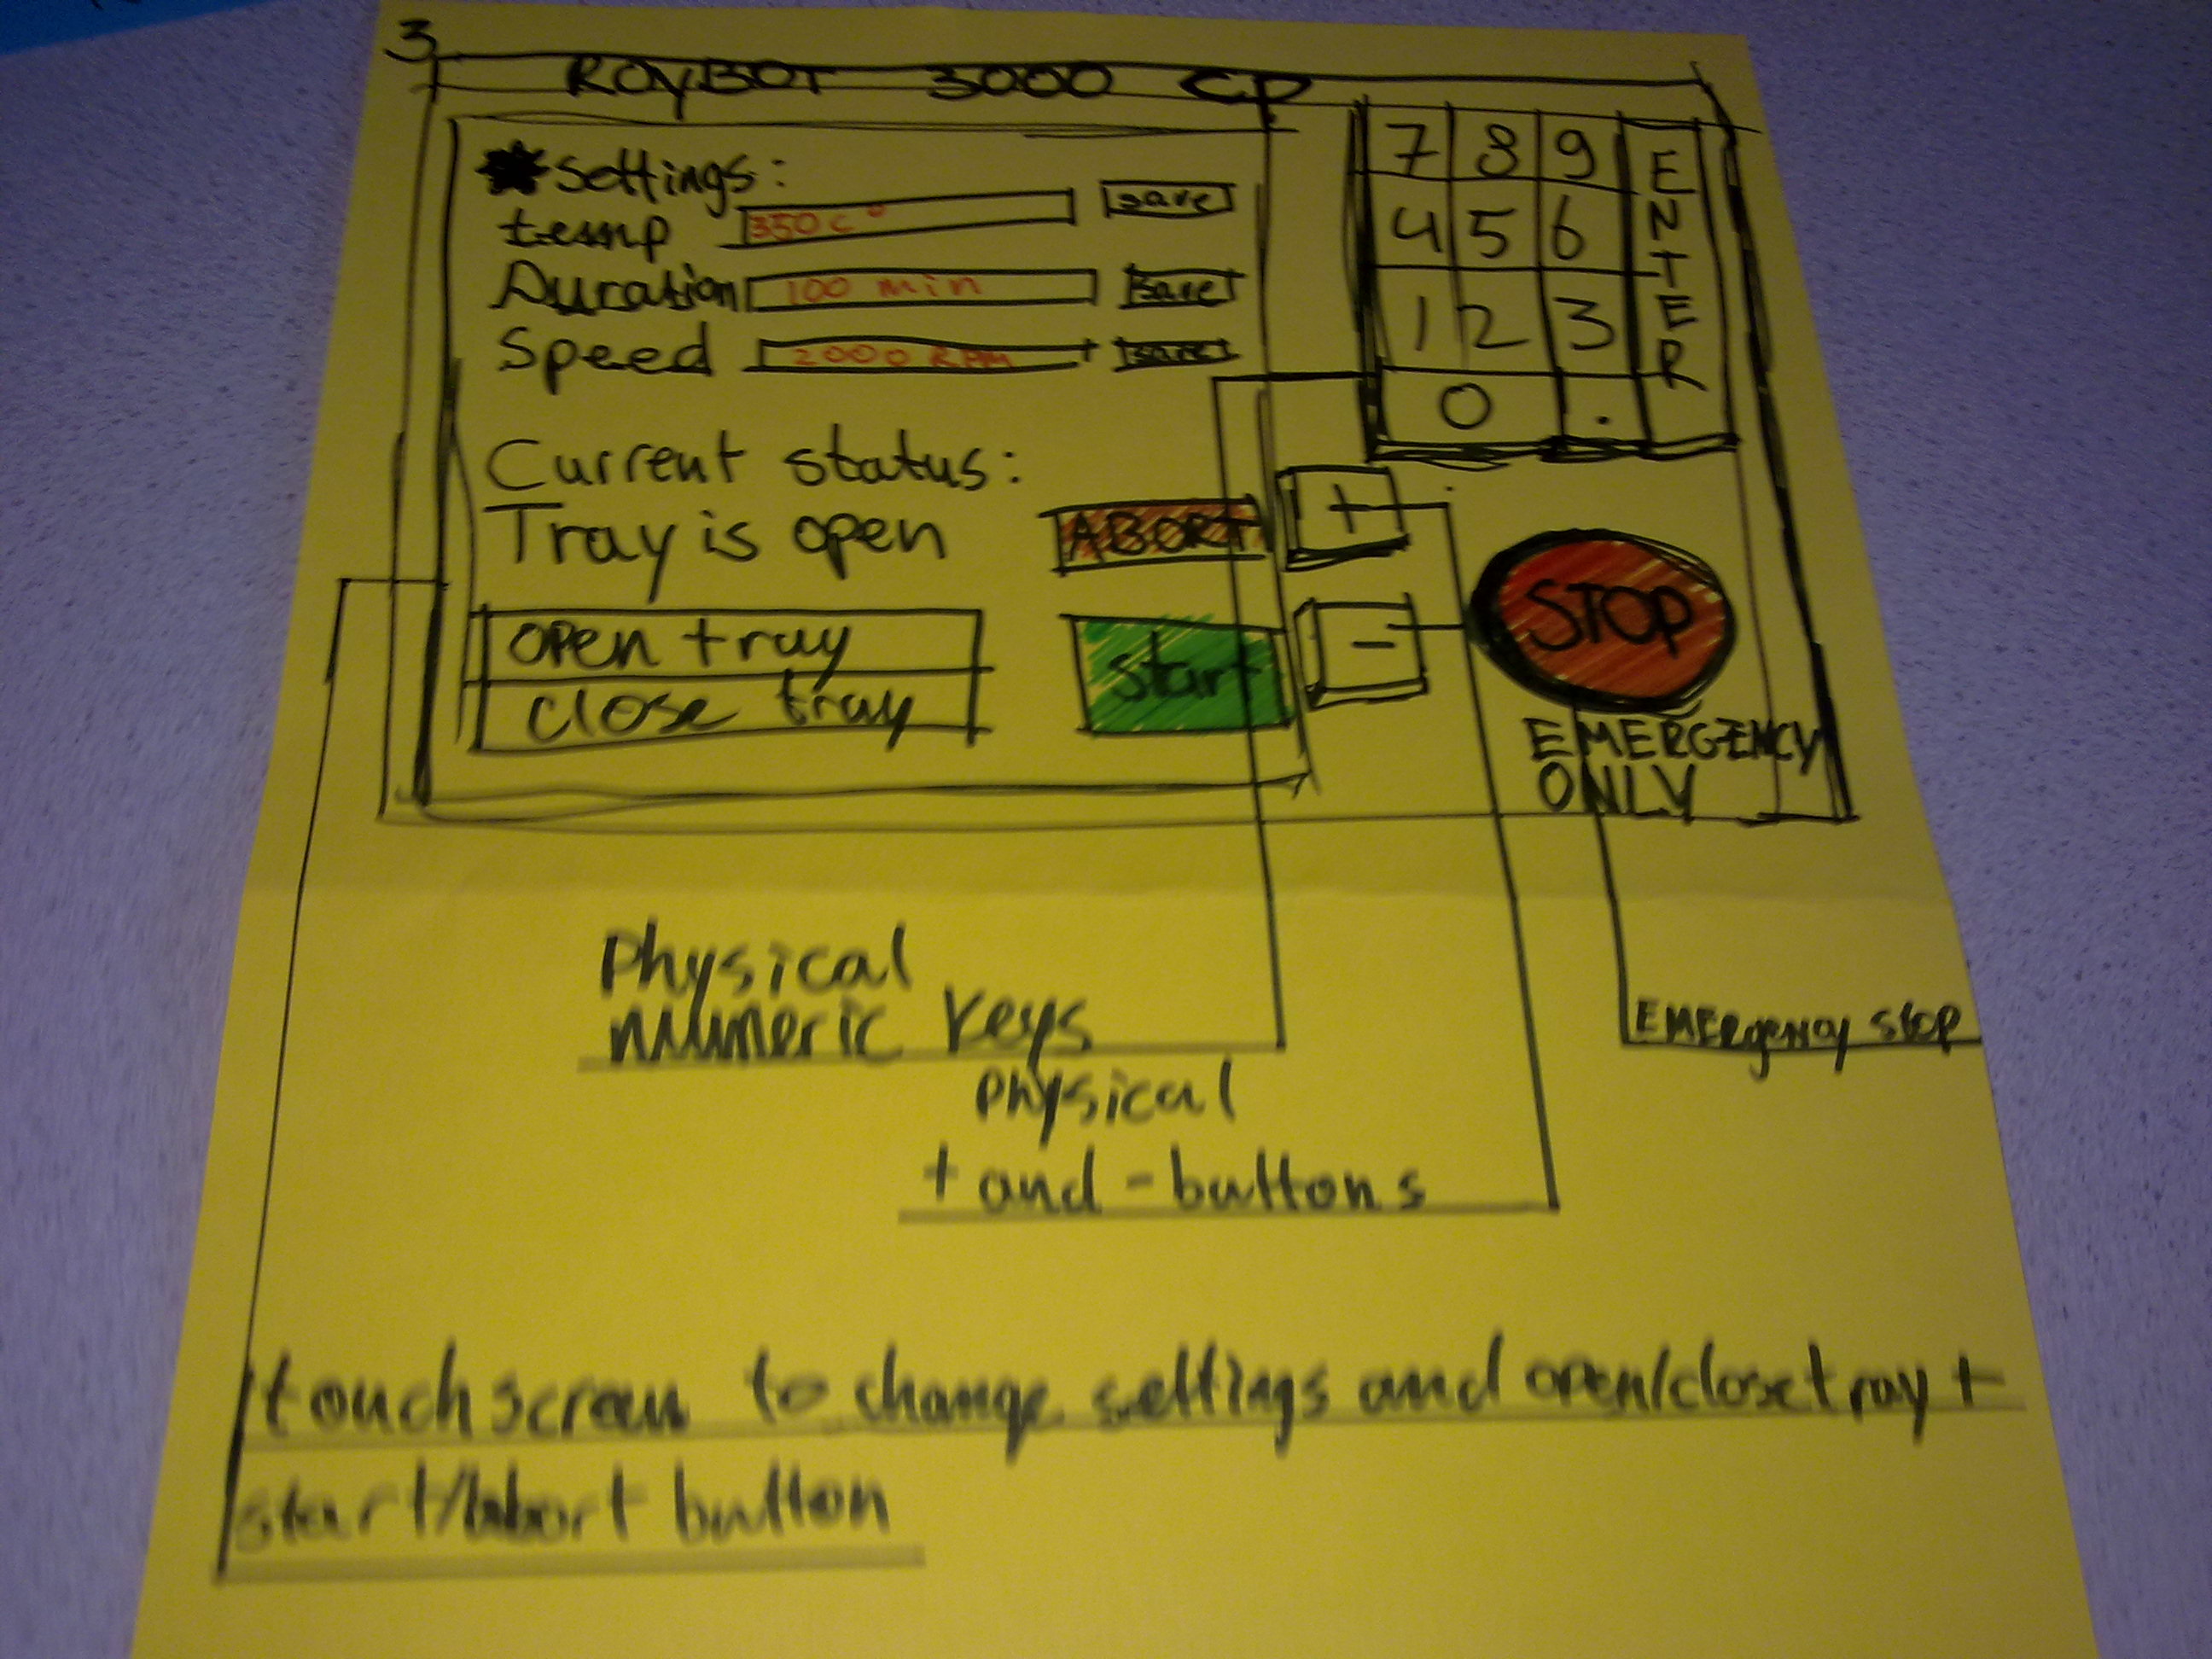 3
ROYBOT 3000 CP
Settings:
temp 350 c° save
Duration 100 min save
Speed 2000 RPM save
Current status:
Tray is open
ABORT
open tray
close tray
start
7 8 9
4 5 6
1 2 3
0 .
ENTER
+
-
STOP
EMERGENCY
ONLY
Physical
numeric keys
physical
+ and - buttons
EMERgency stop
touch screen to change settings and open/close tray +
start/abort button